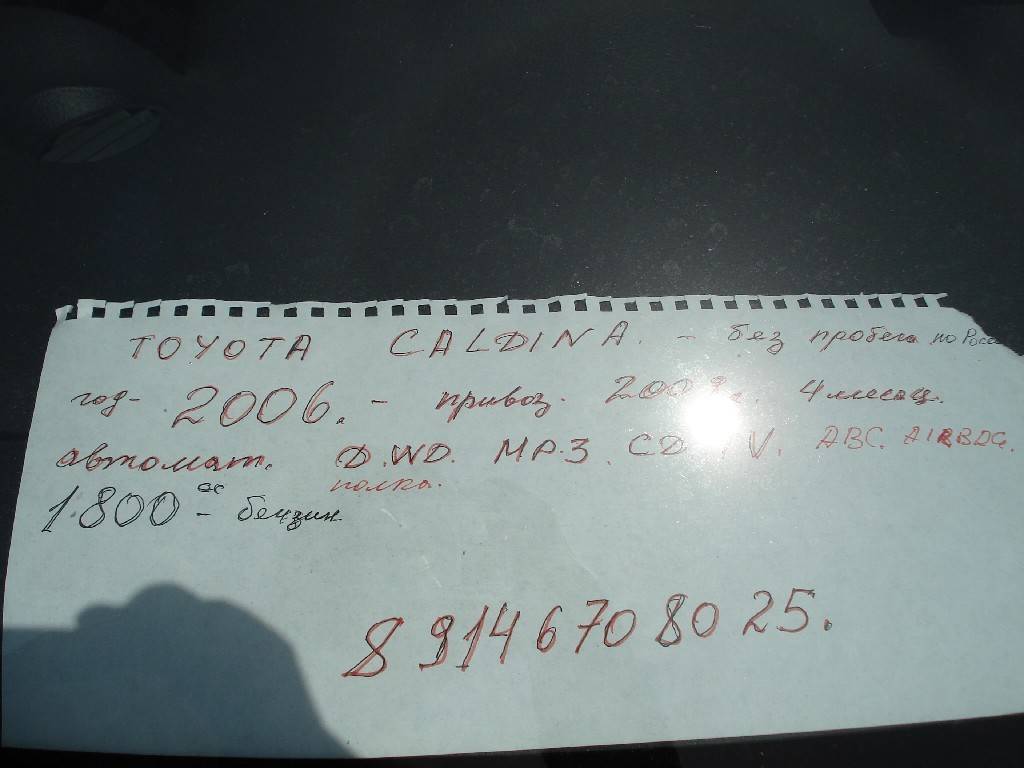 TOYOTA CALDINA. - без пробега по Росс
год- 2006. - привоз. 2009г. 4 месяц.
автомат. Ф.WD. MP.3. CD V. ABC. AIRBAG.
полка.
1.800 - бензин.
8 914 670 80 25.